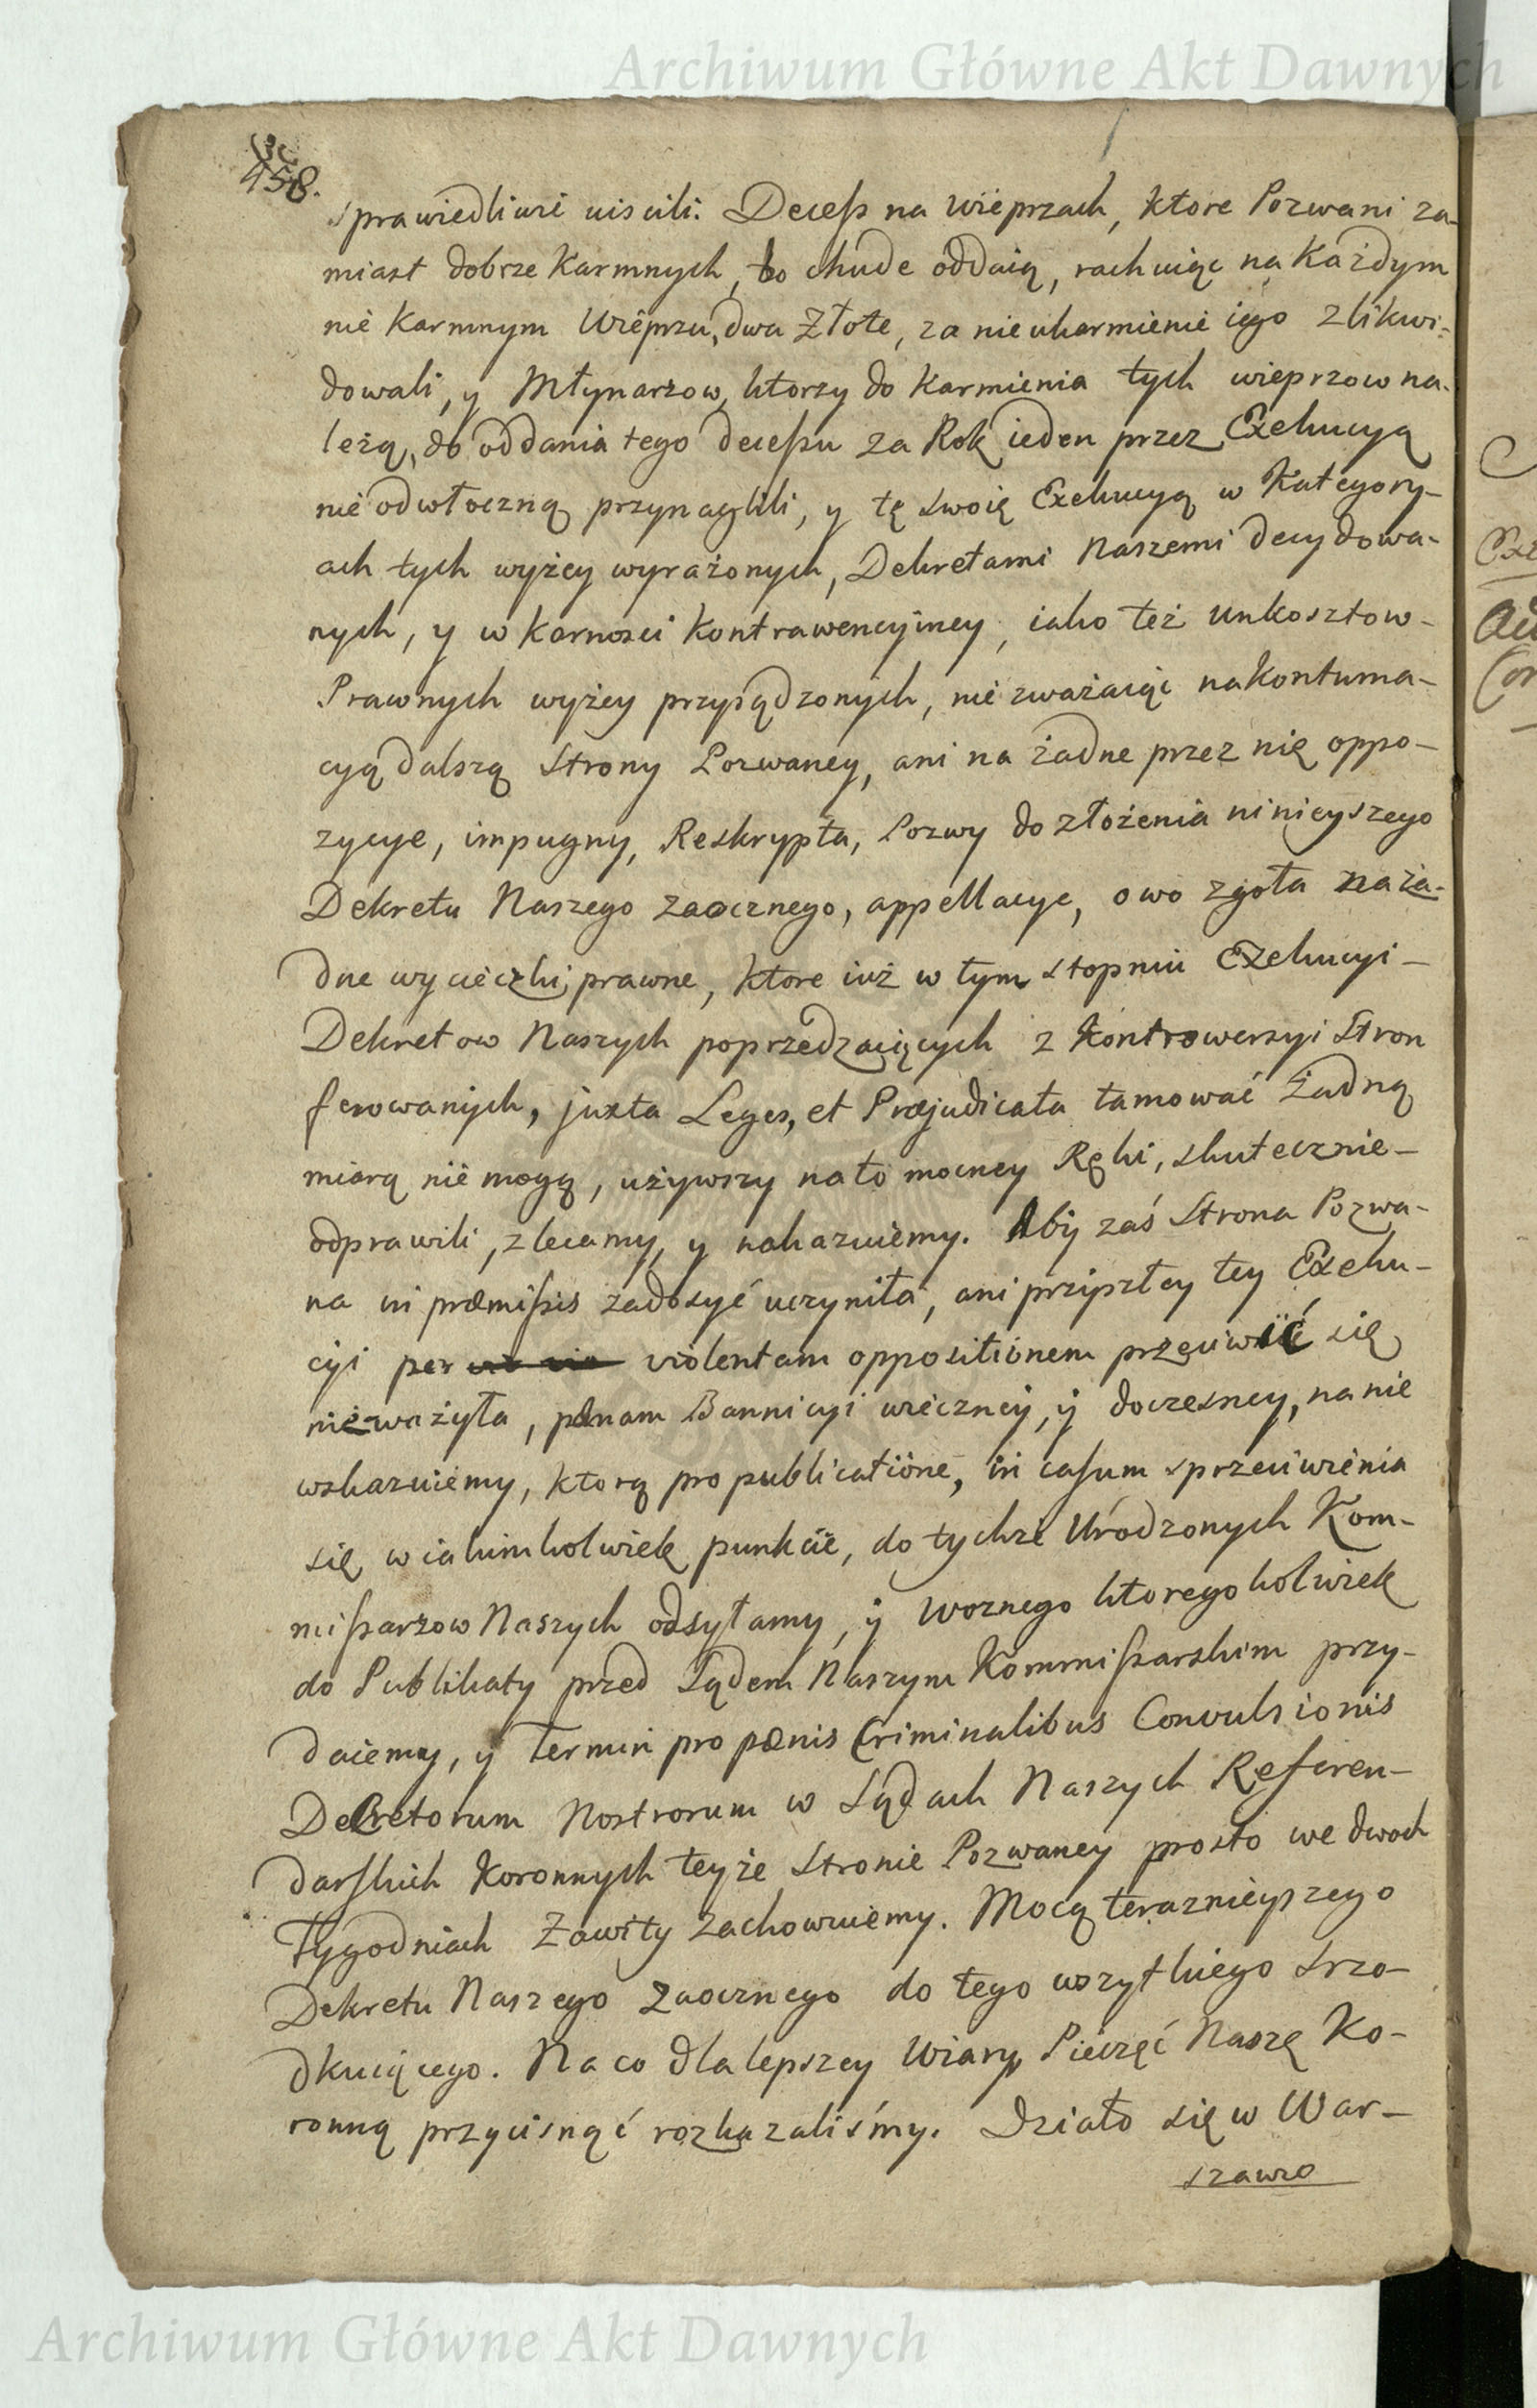 Archiwum Główne Akt Dawnych
458.
sprawiedliwie uiscili. Decess na Wieprzach, ktore Pozwani za-
miast dobrze Karmnych, to chude oddaią, rachuiąc na Każdym
nie Karmnym Wieprzu, dwa Złote, za nieukarmienie iego zlikwi-
dowali, y Młynarzow, ktorzy do Karmienia tych wieprzow na-
leżą, do oddania tego decessu za Rok ieden przez Exekucyą
nie odwłoczną przynaglili, y tę swoię Exekucyą w Kategory-
ach tych wyżey wyrażonych, Dekretami Naszemi decydowa-
nych, y w Karnosci Kontrawencyiney, iako też Unkosztow
Prawnych wyżey przysądzonych, nie zważaiąc na kontuma-
cyą dalszą Strony Pozwaney, ani na żadne przez nię oppo-
zycye, impugny, Reskrypta, Pozwy do złożenia ninieyszego
Dekretu Naszego zaocznego, appellacye, owo zgoła na ża-
dne wycieczki prawne, ktore iuż w tym stopniu Exekucyi
Dekretow Naszych poprzedzaiących z Kontrowersyi Stron
ferowanych, juxta Leges, et Præjudicata tamować Żadną
miarą nie mogą, używszy na to mocney Ręki, skutecznie
odprawili, zlecamy, y nakazuiemy. Aby zaś Strona Pozwa-
na in præmissis zadosyć uczyniła, ani przyszłey tey Exeku-
cyi per violentam oppositionem przeciwić się
nieważyła, pænam Bannicyi wieczney, y doczesney, na nie
wskazuiemy, ktorą pro publicatione, in casum sprzeciwienia
się w iakimkolwiek punkcie, do tychże Urodzonych Kom-
missarzow Naszych odsyłamy, y Woznego ktoregokolwiek
do Publikaty przed Sądem Naszym Kommissarskim przy-
daiemy, y Termin pro pænis Criminalibus Convulsionis
Decretorum Nostrorum w Sądach Naszych Referen-
darskich Koronnych teyże Stronie Pozwaney prosto we dwoch
Tygodniach Zawity zachowuiemy. Mocą teraznieyszego
Dekretu Naszego zaocznego do tego wszytkiego srzo-
dkuiącego. Na co dla lepszey Wiary, Pieczęć Naszę Ko-
ronną przycisnąć rozkazaliśmy. Działo się w War-
szawie
Archiwum Główne Akt Dawnych